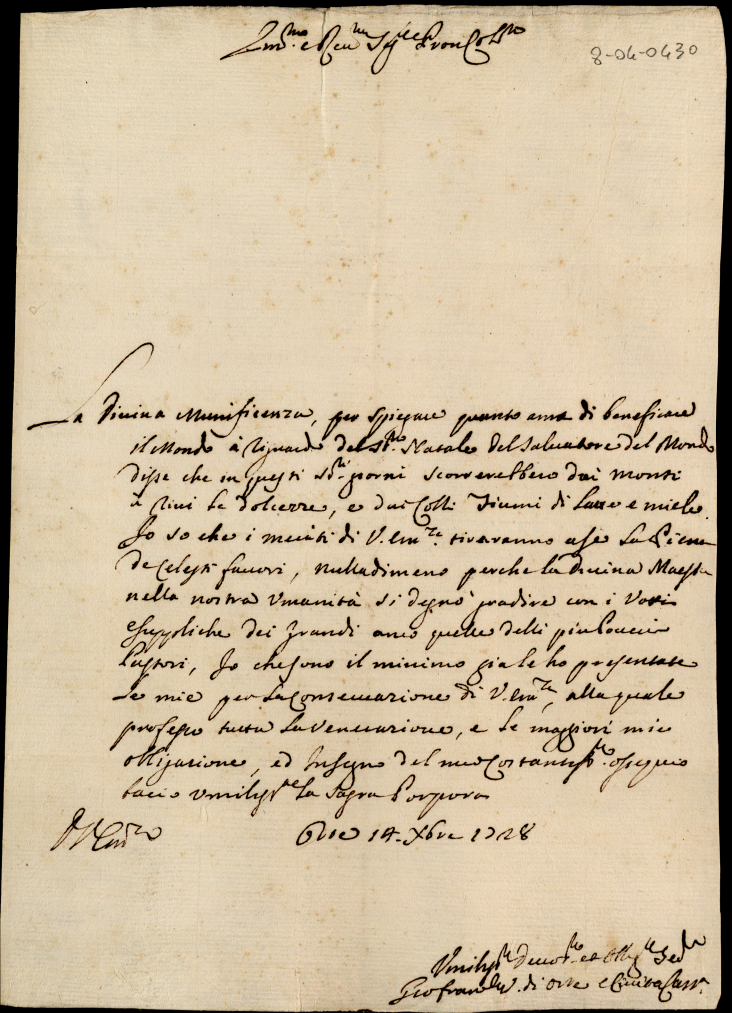 Em.mo e Reu.mo Sig.re Pron Col.mo
8-04-0430
La Diuina Munificenza, per spiegare quanto ama di beneficare
il Mondo à riguardo del S.mo Natale del Saluatore del Mondo
disse che in questi S.mi giorni scorrerebbero dai monti
à riui le dolcezze, e dai Colli fiumi di Latte e miele.
Jo so che i meriti di V. Em.za tireranno a se La Piena
de Celesti fauori, nulladimeno perche la Diuina Maestà
nella nostra Vmanità si degnò gradire con i Voti
e suppliche dei Grandi anco quelle delli più Poueri
Pastori, Jo che sono il minimo gia le ho presentate
Le mie per La Conseruazione di V. Em.za, alla quale
professo tutta La Venerazione, e Le maggiori mie
obligazione, ed Insegno del mio Costantiss.mo ossequio
bacio Vmiliss.te La Sagra Porpora
D V Em.za
Orte 14. Xbre 1728
Vmiliss.mo Deuot.mo et Obl.mo Ser.re
Gio fran.co V. di Orte e Ciuita Cast.a